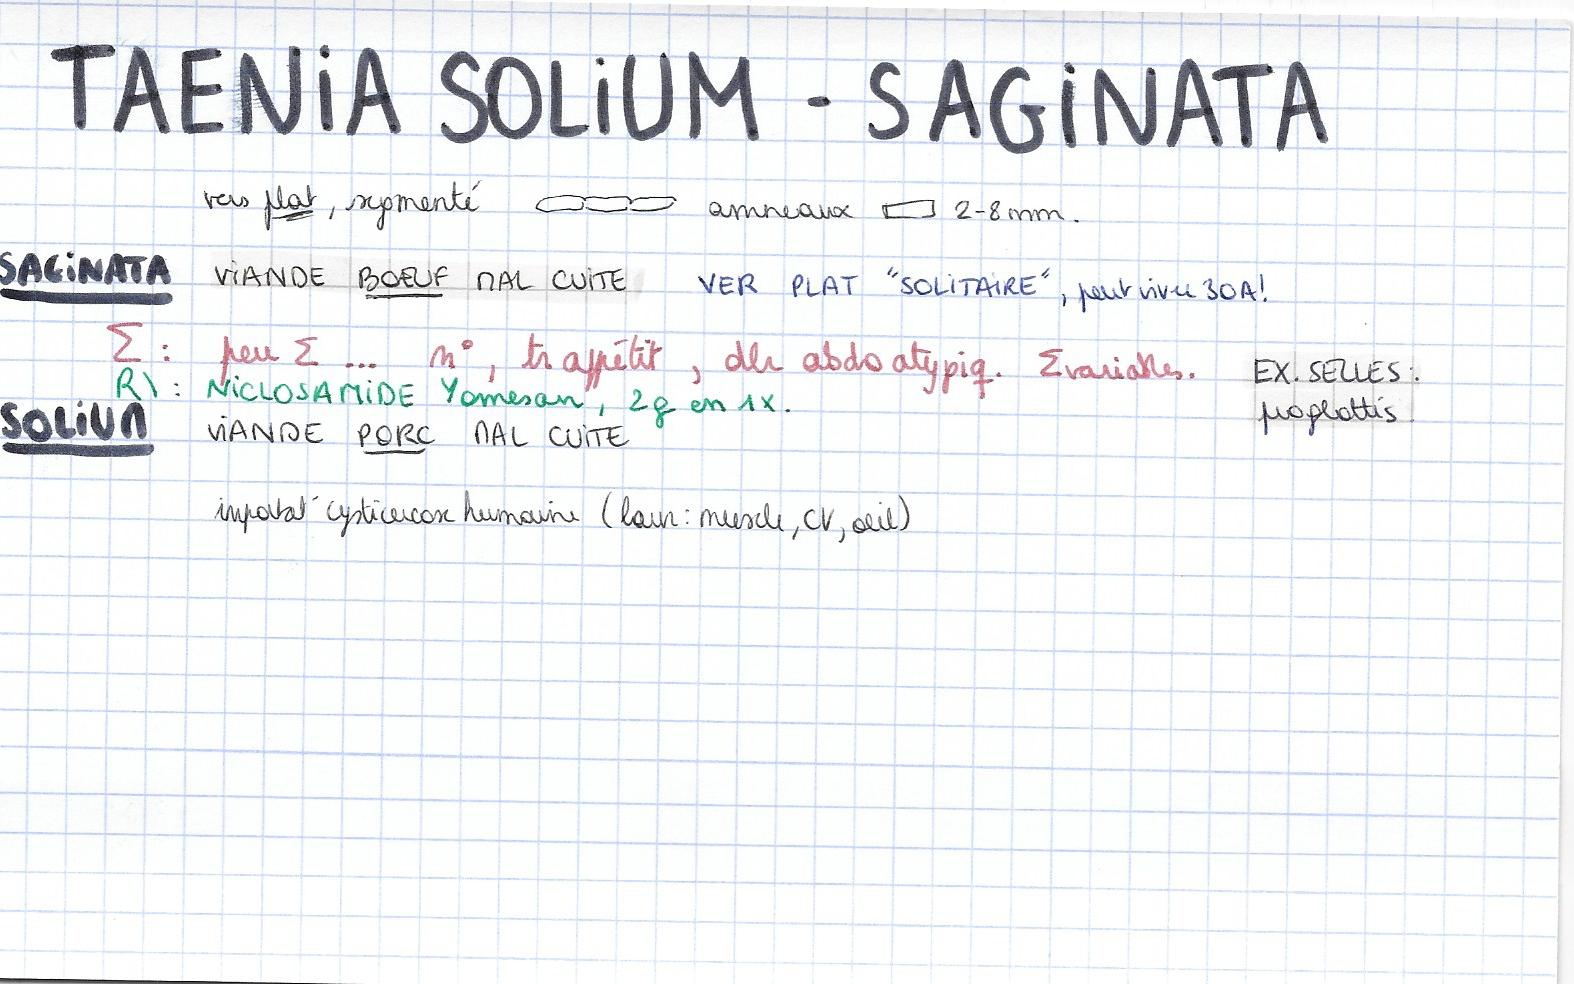 TAENIA SOLIUM - SAGINATA
vers plat, segmenté anneaux 2-8mm.
SAGINATA VIANDE BOEUF MAL CUITE VER PLAT "SOLITAIRE", peut vivre 30A!
Σ: peu Σ ... n°, tr appétit, dlr abdo atypiq. Σ variables. EX. SELLES:
R\: NICLOSAMIDE Yomesan, 2g en 1x. proglottis.
SOLIUM VIANDE PORC MAL CUITE
cysticercose humaine (larv: muscle, CV, oeil)